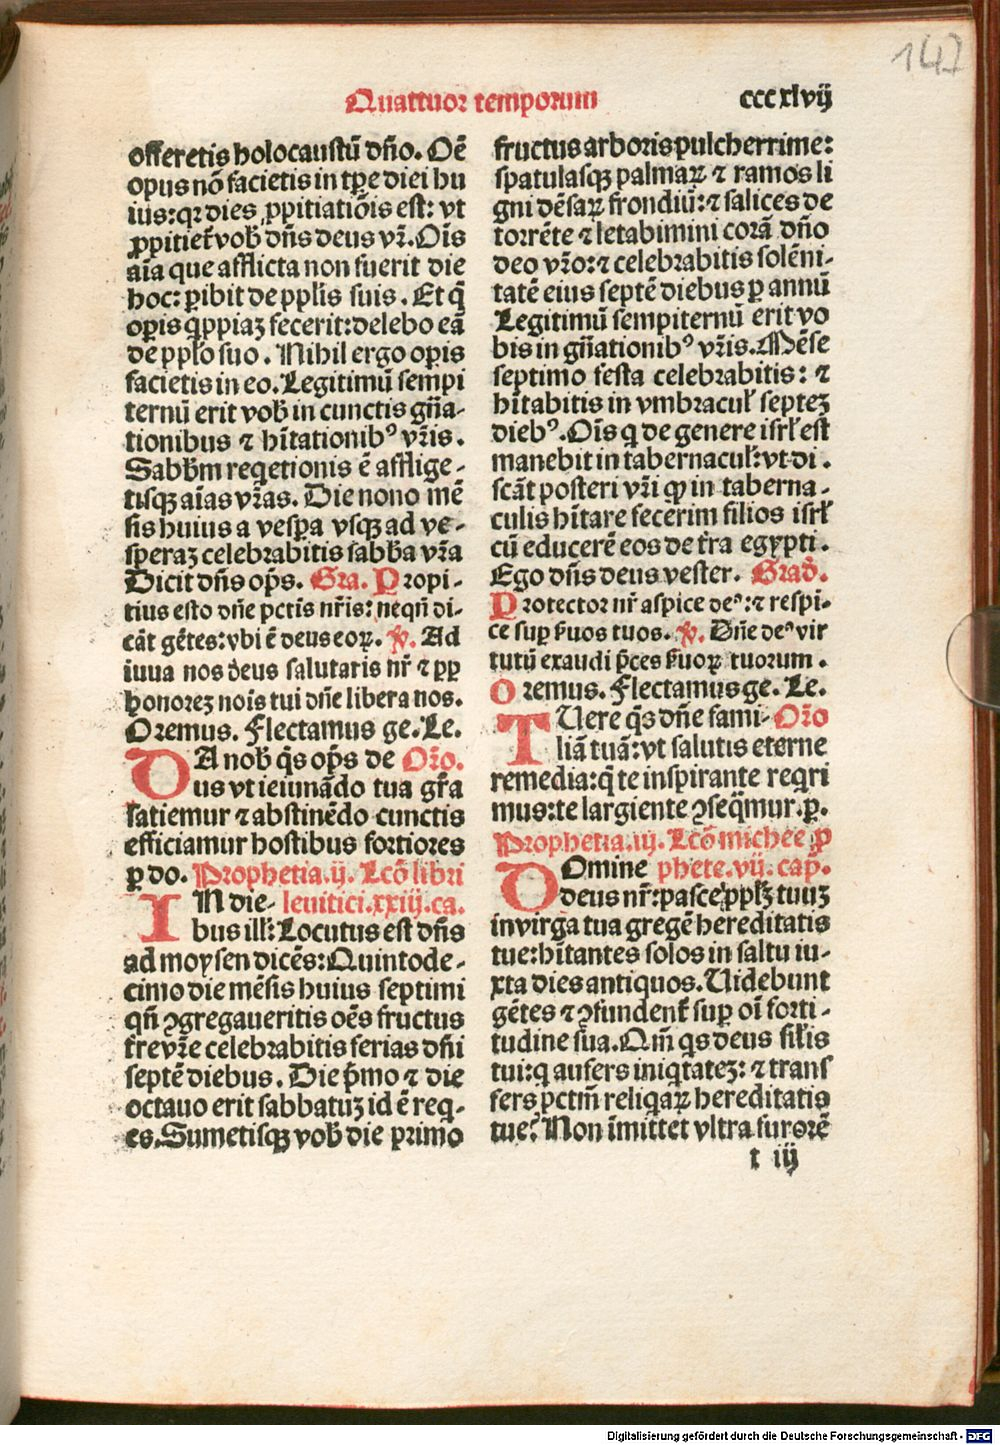 147
Quattuor temporum cccxlvij
offeretis holocaustū dño. Oē
opus nō facietis in tp̄e diei hu
ius: qꝛ dies ꝓpitiatiōis est: vt
ꝓpitieẗ vob̄ dn̄s deus vr̄. Oīs
aīa que afflicta non fuerit die
hoc: ꝑibit de pplis suis. Et q̄
oꝑis qͥppiaꝫ fecerit: delebo eā
de pplo suo. Nihil ergo oꝑis
facietis in eo. Legitimū sempi
ternū erit vob̄ in cunctis gn̄a-
tionibus ⁊ hītationibꝰ vr̄is.
Sabb̄m reqͥetionis ē afflige-
tisqꝫ aīas vr̄as. Die nono mē
sis huius a vesꝑa vsqꝫ ad ve-
speraꝫ celebrabitis sabb̄a vr̄a
Dicit dn̄s op̄s. Gra. Propi-
tius esto dn̄e pctis nr̄is: neqn̄ di-
cāt gētes: vbi ē deus eoꝝ. ℣. Ad
iuua nos deus salutaris nr̄ ⁊ ꝓp
honoreꝫ nois tui dn̄e libera nos.
Oremus. Flectamus ge. Le.
DA nob̄ q̄s op̄s de Or̄o.
us vt ieiunādo tua gr̄a
satiemur ⁊ abstinēdo cunctis
efficiamur hostibus fortiores
ꝑ do. Prophetia.ij. Lcō libri
IN die- leuitici.xxiij.ca.
bus ill̄: Locutus est dn̄s
ad moysen dicēs: Quintode-
cimo die mēsis huius septimi
qn̄ ꝯgregaueritis oēs fructus
tre vr̄e celebrabitis ferias dn̄i
septē diebus. Die pͥmo ⁊ die
octauo erit sabbatuꝫ id ē reqͥ-
es. Sumetisqꝫ vob̄ die primo
fructus arboris pulcherrime:
spatulasqꝫ palmaꝝ ⁊ ramos li
gni dēsaꝝ frondiū: ⁊ salices de
torrēte ⁊ letabimini corā dn̄o
deo vr̄o: ⁊ celebrabitis solēni-
tatē eius septē diebus ꝑ annū
Legitimū sempiternū erit vo
bis in gn̄ationibꝰ vr̄is. Mēse
septimo festa celebrabitis: ⁊
hītabitis in vmbracul̄ septeꝫ
diebꝰ. Oīs qͥ de genere isrl̄ est
manebit in tabernacul̄: vt di.
scāt posteri vr̄i ꝙ in taberna-
culis hītare fecerim filios isrl̄
cū educerē eos de tr̄a egypti.
Ego dn̄s deus vester. Grad̄.
Protector nr̄ aspice deꝰ: ⁊ respi-
ce suꝑ ẜuos tuos. ℣. Dn̄e deꝰ vir
tutū exaudi p̄ces ẜuoꝝ tuorum.
Oremus. Flectamus ge. Le.
TUere q̄s dn̄e fami- Or̄o
liā tuā: vt salutis eterne
remedia: q̄ te inspirante reqͥri
mus: te largiente ꝯseq̄mur. ꝑ.
Prophetia.iij. Lcō michee ꝓ
DOmine phete.vij. cap̄.
deus nr̄: pasce pplꝫ tuuꝫ
in virga tua gregē hereditatis
tue: hītantes solos in saltu iu-
xta dies antiquos. Uidebunt
gētes ⁊ ꝯfundenẗ suꝑ oī forti-
tudine sua. Qm̄ qͥs deus sil̄is
tui: qͥ aufers iniqͥtateꝫ: ⁊ trans
fers pctm̄ reliqͥaꝝ hereditatis
tue? Non īmittet vltra furorē
t iij
Digitalisierung gefördert durch die Deutsche Forschungsgemeinschaft - DFG